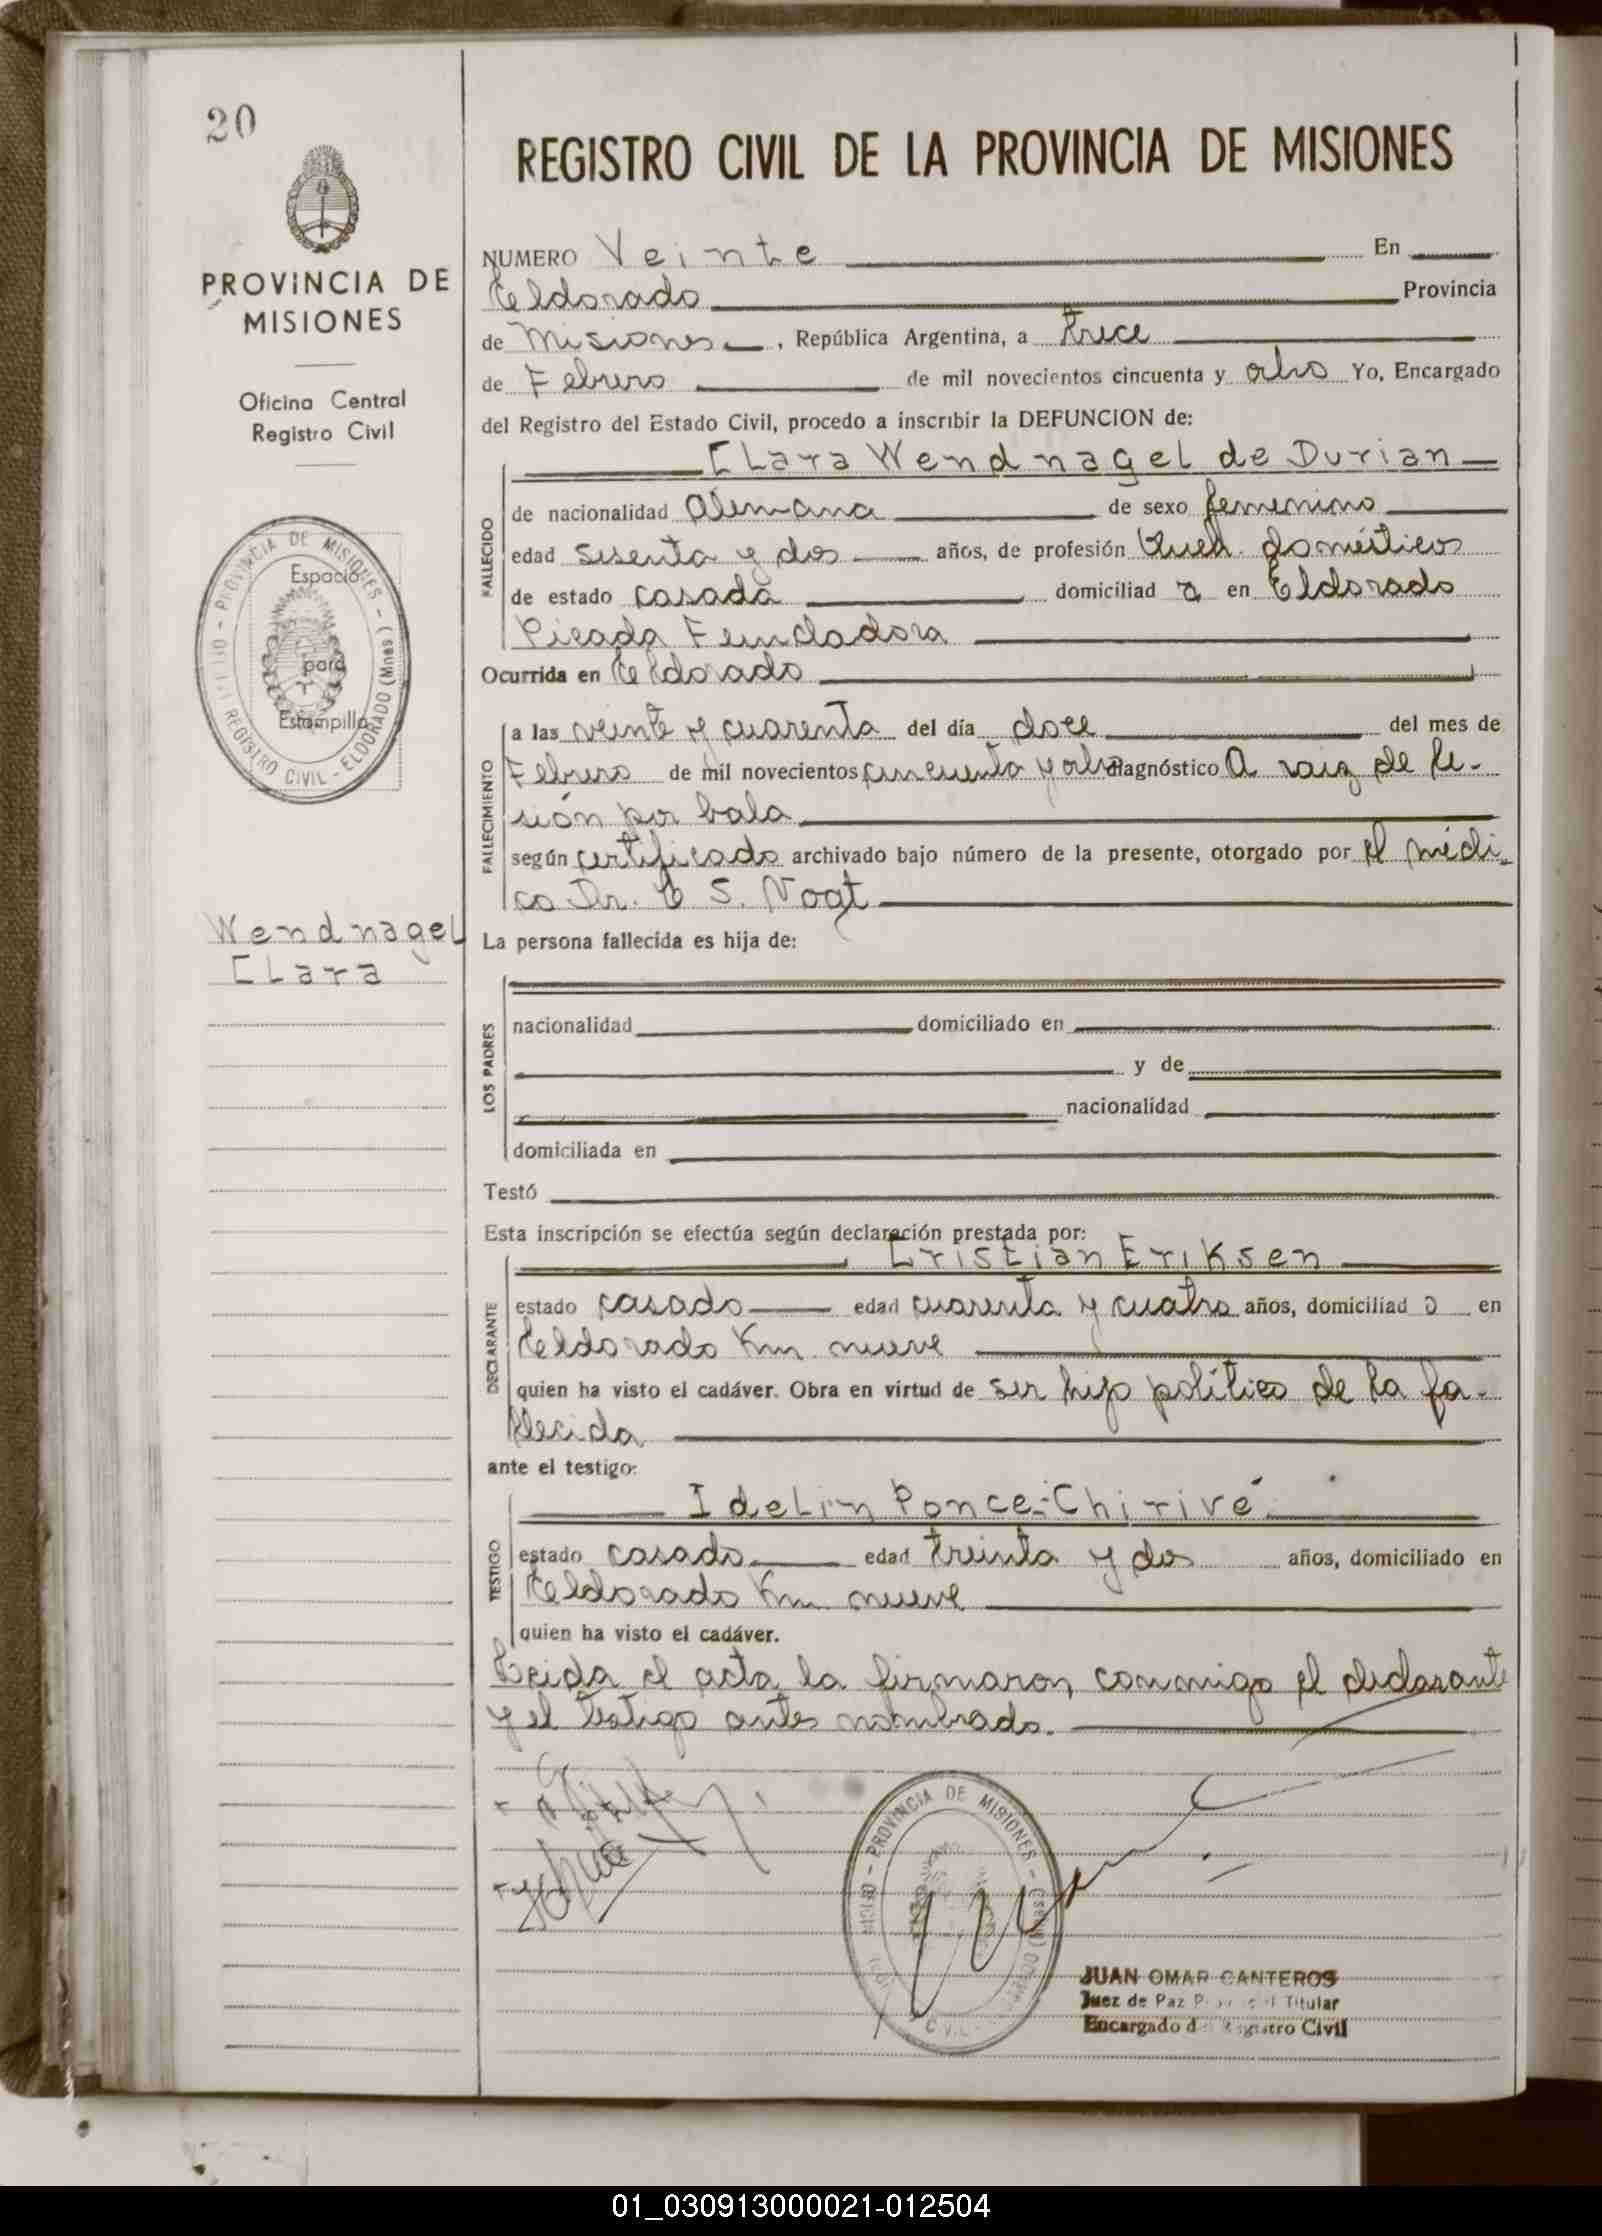 20
PROVINCIA DE
MISIONES
Oficina Central
Registro Civil
Espacio
para
Estampilla
PROVINCIA DE MISIONES - REGISTRO CIVIL - ELDORADO (Mnes)
Wendnagel
Clara
REGISTRO CIVIL DE LA PROVINCIA DE MISIONES
NUMERO Veinte En
Eldorado Provincia
de Misiones, República Argentina, a trece
de Febrero de mil novecientos cincuenta y ocho Yo, Encargado
del Registro del Estado Civil, procedo a inscribir la DEFUNCION de:
Clara Wendnagel de Durian
FALLECIDO
de nacionalidad Alemana de sexo femenino
edad sesenta y dos años, de profesión Queh. domésticos
de estado casada domiciliad a en Eldorado
Picada Fundadora
Ocurrida en Eldorado
FALLECIMIENTO
a las veinte y cuarenta del día doce del mes de
Febrero de mil novecientos cincuenta y ocho diagnóstico A raiz de le-
sión por bala
según certificado archivado bajo número de la presente, otorgado por el médi-
co Dr. E S. Vogt
La persona fallecida es hija de:
LOS PADRES
nacionalidad domiciliado en
y de
nacionalidad
domiciliada en
Testó
Esta inscripción se efectúa según declaración prestada por:
Cristian Eriksen
DECLARANTE
estado casado edad cuarenta y cuatro años, domiciliad o en
Eldorado Km. nueve
quien ha visto el cadáver. Obra en virtud de ser hijo político de la fa-
llecida
ante el testigo:
Idelin Ponce-Chirivé
TESTIGO
estado casado edad treinta y dos años, domiciliado en
Eldorado Km. nueve
quien ha visto el cadáver.
Leida el acta la firmaron conmigo el declarante
y el testigo antes nombrado.
PROVINCIA DE MISIONES
CIVIL
JUAN OMAR CANTEROS
Juez de Paz Titular
Encargado del Registro Civil
01_030913000021-012504